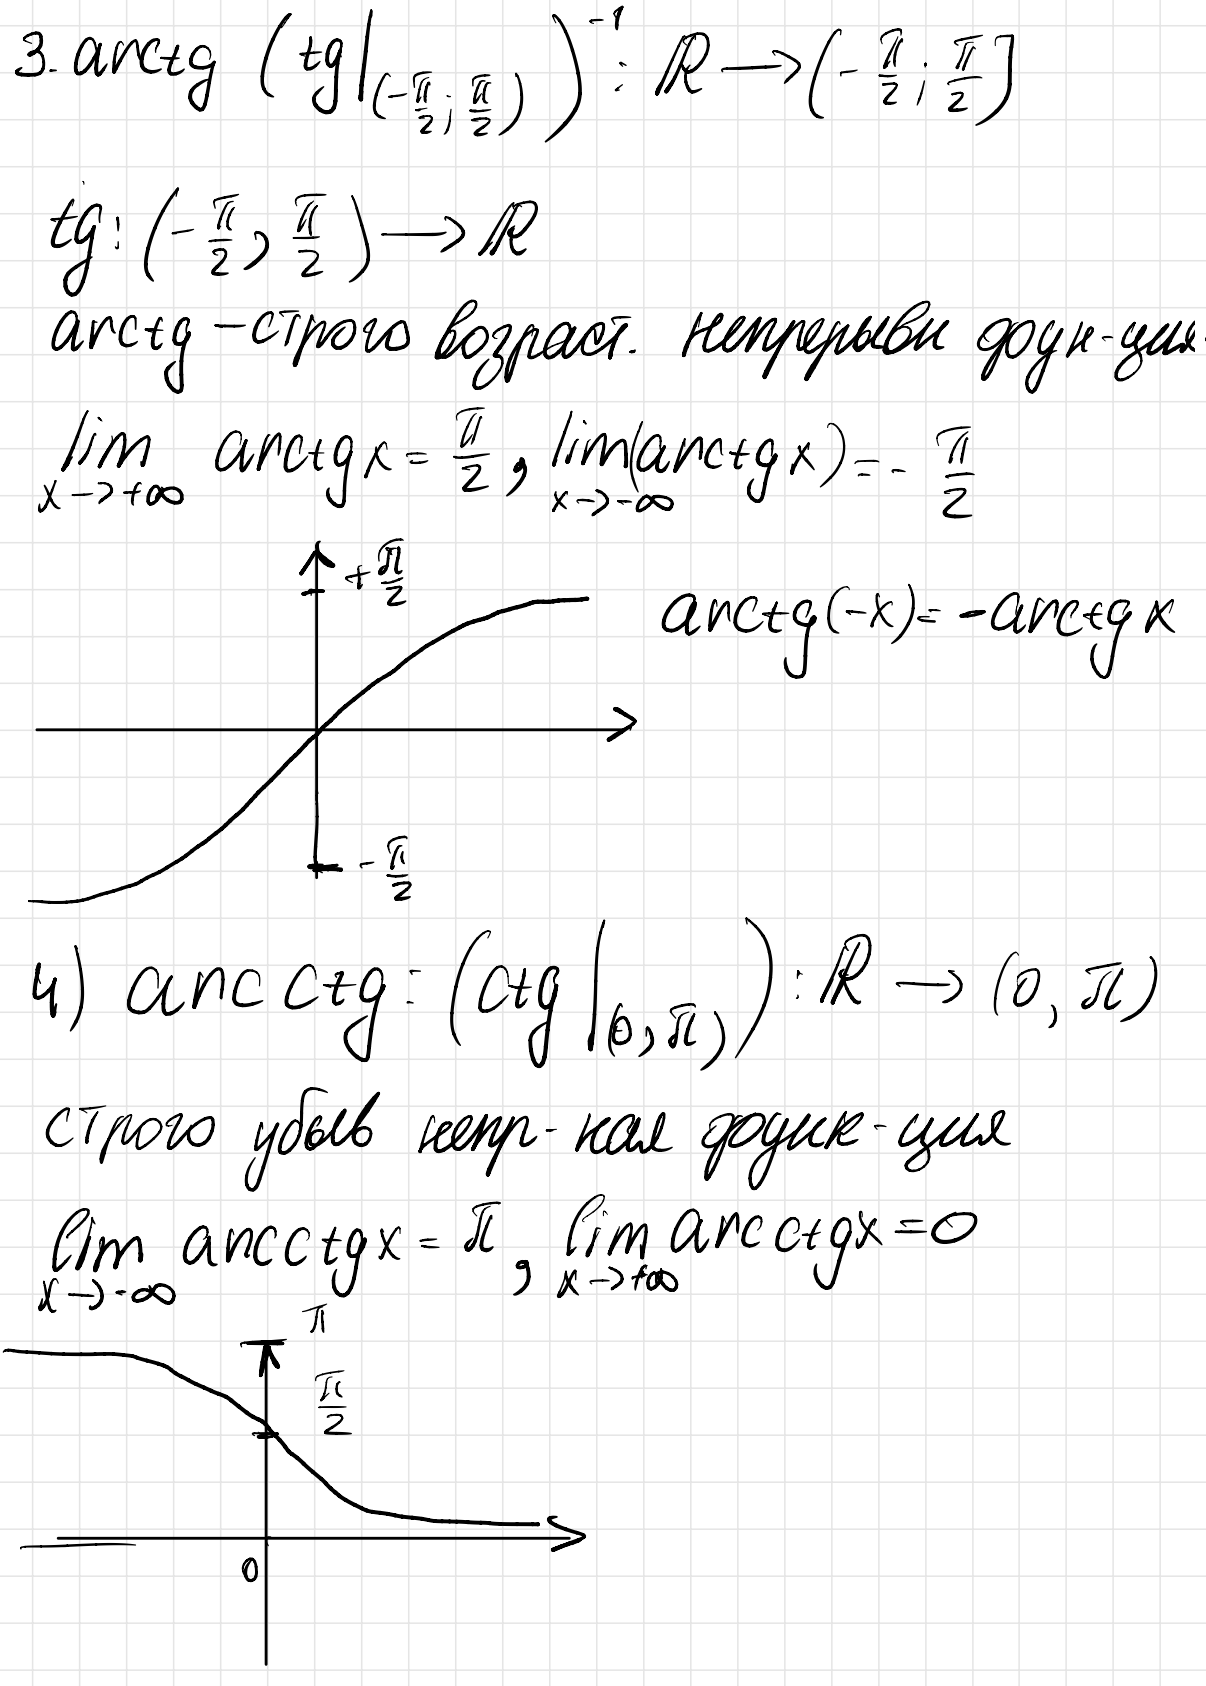 3. arctg (tg|(-π/2; π/2))⁻¹ : ℝ → (-π/2; π/2]
tg: (-π/2, π/2) → ℝ
arctg – строго возраст. непрерывн фун-ция.
lim x→+∞ arctg x = π/2, lim x→-∞ (arctg x) = - π/2
+π/2
arctg(-x) = -arctg x
- π/2
4) arcctg: (ctg|(0, π)) : ℝ → (0, π)
строго убыв непр-ная функ-ция
lim x→-∞ arcctg x = π, lim x→+∞ arcctg x = 0
π
π/2
0